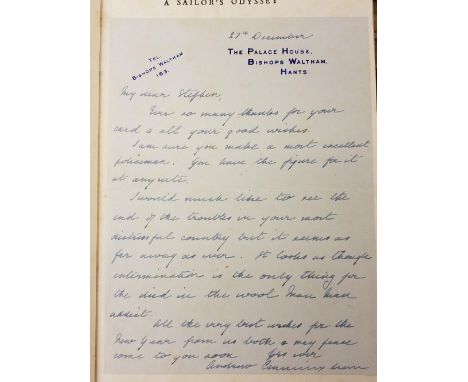 A SAILOR'S ODYSSEY
27th December
TEL.
BISHOPS WALTHAM
183.
THE PALACE HOUSE,
BISHOPS WALTHAM,
HANTS
My dear Stephen,
Ever so many thanks for your
card & all your good wishes.
I am sure you make a most excellent
policeman. You have the figure for it
at any rate.
I would much like to see the
end of the troubles in your most
distressful country but it seems as
far away as ever. It looks as though
extermination is the only thing for
the died in the wool Mau Mau
addict.
All the very best wishes for the
New Year from us both & may peace
come to you soon Yrs ever
Andrew Cunningham